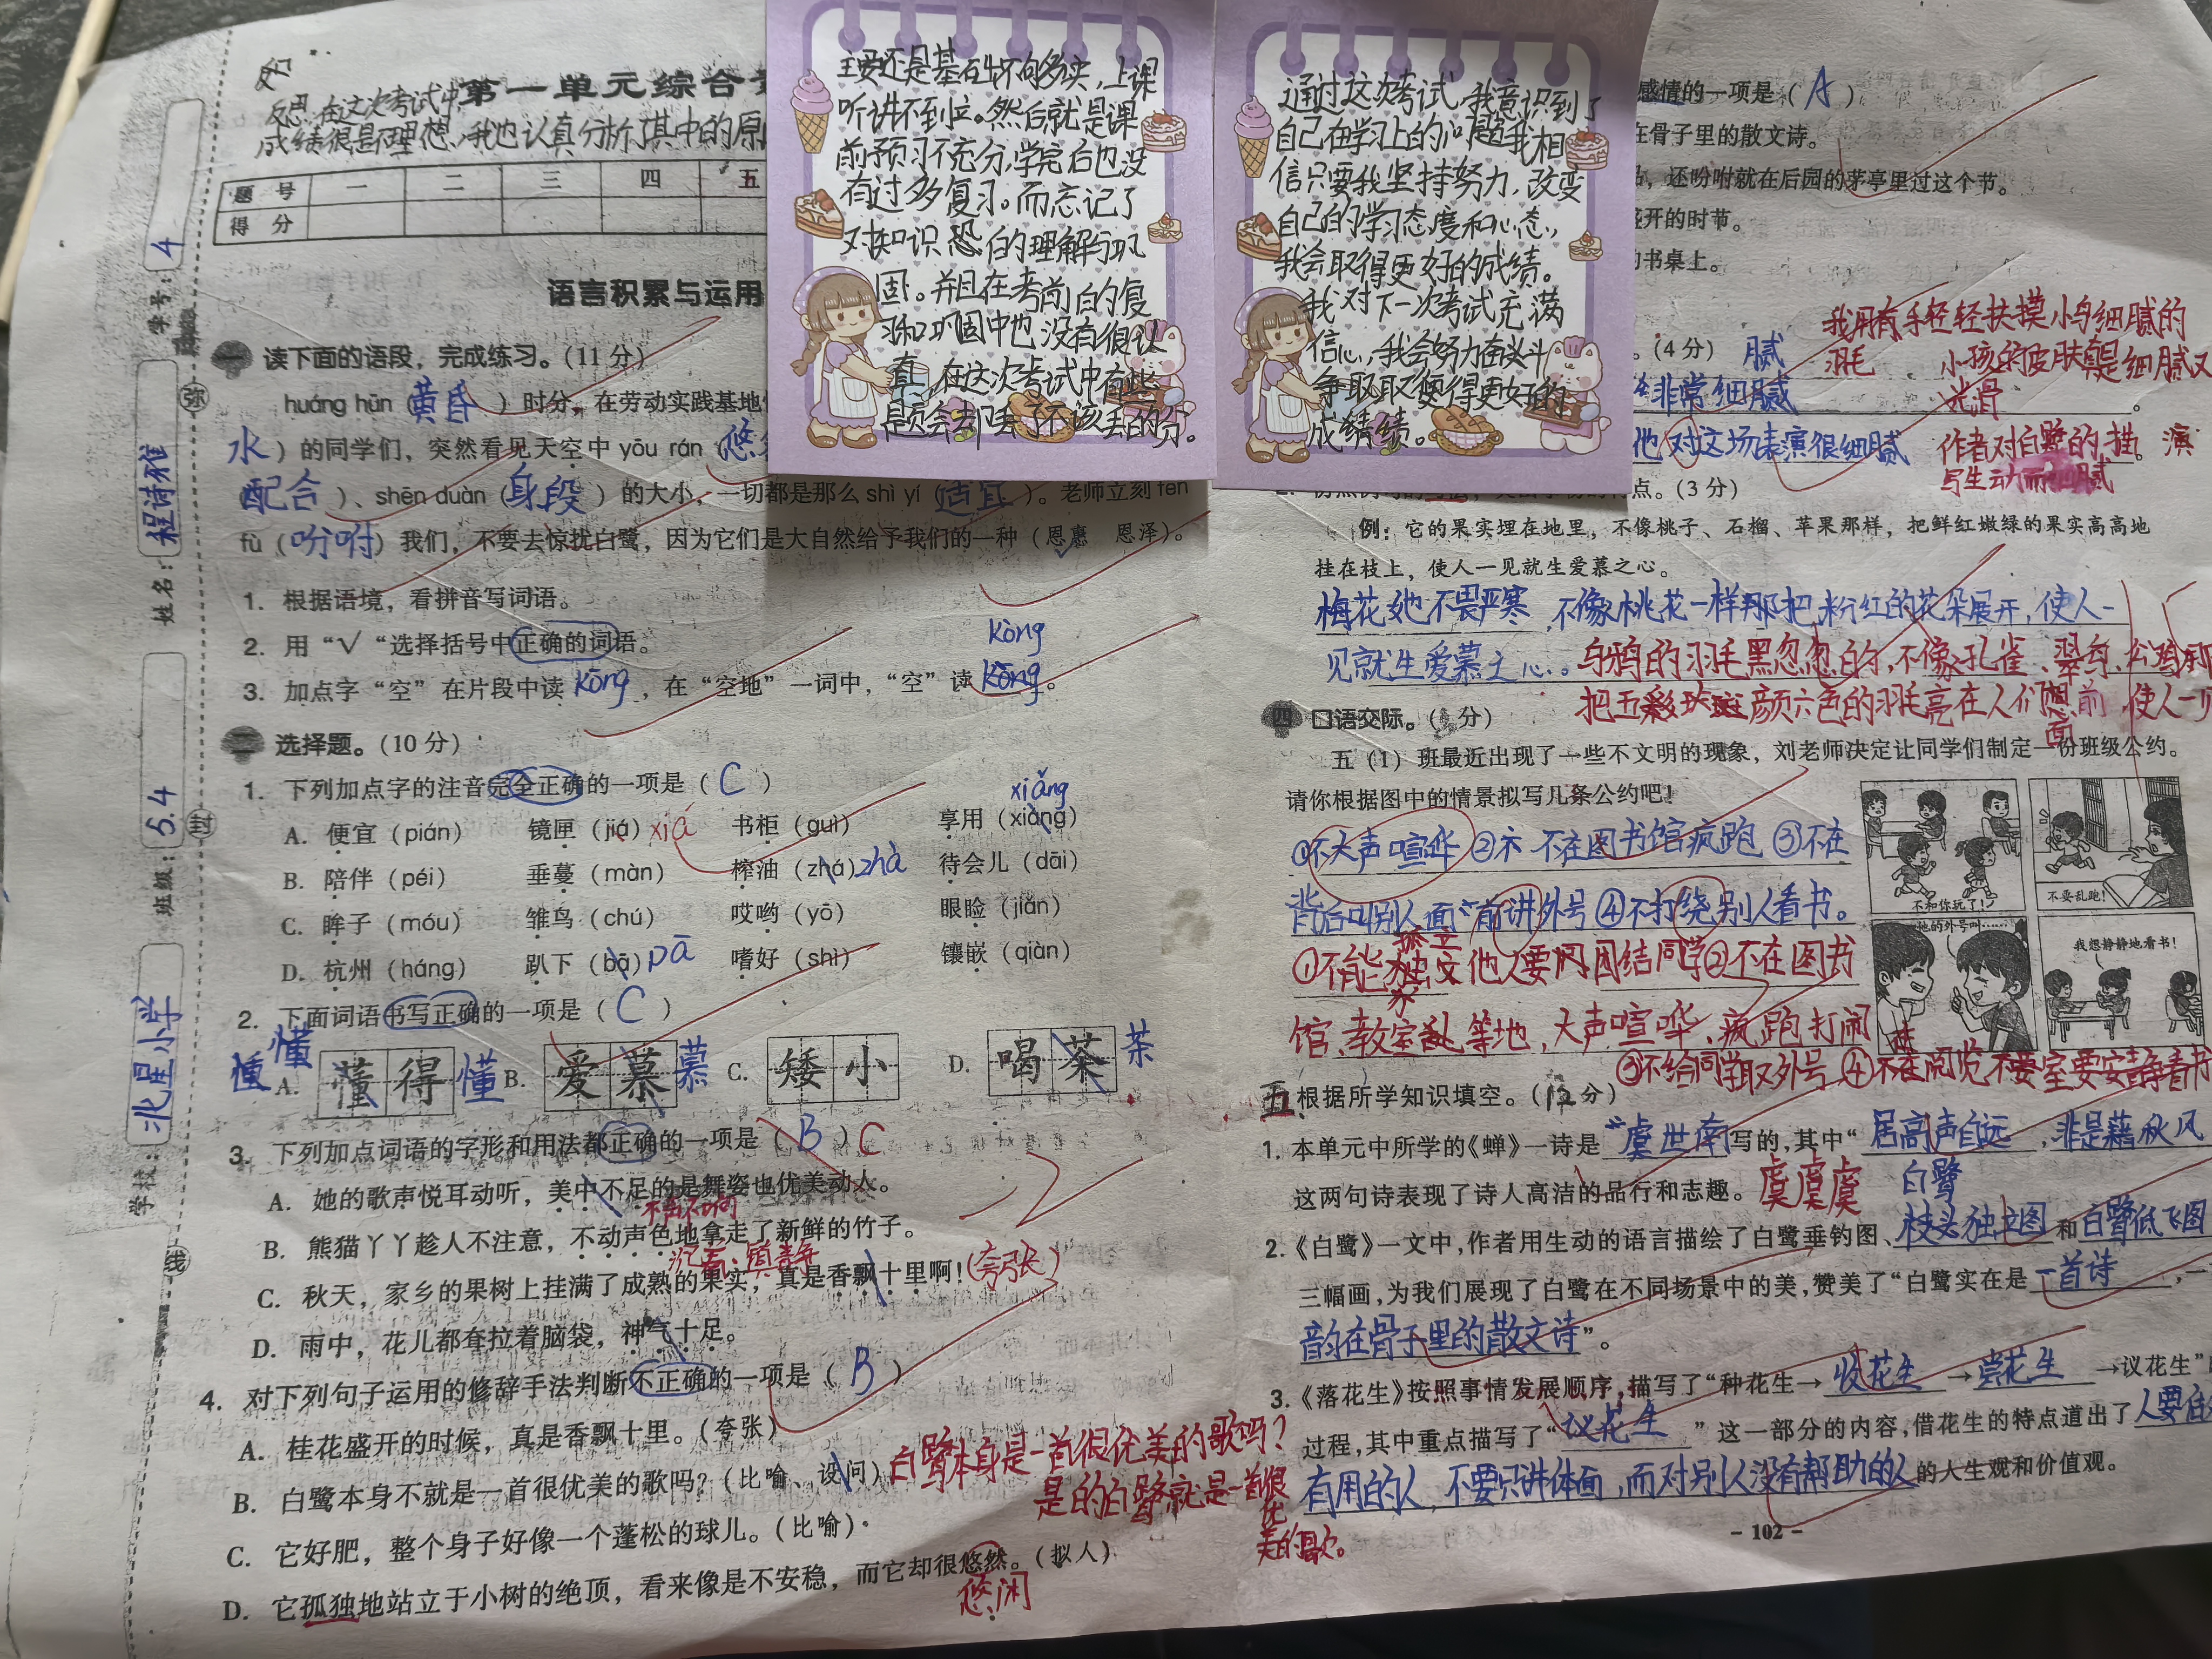 反思
反思:在这次考试中
成绩很是不理想,我也认真分析了其中的原
第一单元综合
题号 一 二 三 四 五
得分
学号: 4
姓名: 程诗雅
班级: 5.4
学校: 北星小学
弥
封
线
语言积累与运用
一 读下面的语段,完成练习。(11 分)
huáng hūn(黄昏)时分,在劳动实践基地
水)的同学们,突然看见天空中 yōu rán(悠
(配合)、shēn duàn(身段)的大小,一切都是那么 shì yí(适宜)。老师立刻 fēn
fù(吩咐)我们,不要去惊扰白鹭,因为它们是大自然给予我们的一种(恩惠 恩泽)。
1. 根据语境,看拼音写词语。
2. 用“√“选择括号中正确的词语。
kòng
3. 加点字“空”在片段中读 kōng,在“空地”一词中,“空”读 kōng。
二 选择题。(10 分)
1. 下列加点字的注音完全正确的一项是( C )
xiǎng
A. 便宜(pián) 镜匣(jiá)xiá 书柜(guì) 享用(xiàng)
B. 陪伴(péi) 垂蔓(màn) 榨油(zhá)zhà 待会儿(dāi)
C. 眸子(móu) 雏鸟(chú) 哎哟(yō) 眼睑(jiǎn)
D. 杭州(háng) 趴下(bā)pā 嗜好(shì) 镶嵌(qiàn)
2. 下面词语书写正确的一项是( C )
懂
A. 懂得 懂 B. 爱慕 慕 C. 矮小 D. 喝茶 茶
3. 下列加点词语的字形和用法都正确的一项是( B )C
A. 她的歌声悦耳动听,美中不足的是舞姿也优美动人。
不声不响
B. 熊猫丫丫趁人不注意,不动声色地拿走了新鲜的竹子。
沉着、镇静
C. 秋天,家乡的果树上挂满了成熟的果实,真是香飘十里啊!(夸张)
D. 雨中,花儿都耷拉着脑袋,神气十足。
4. 对下列句子运用的修辞手法判断不正确的一项是( B )
A. 桂花盛开的时候,真是香飘十里。(夸张)
B. 白鹭本身不就是一首很优美的歌吗?(比喻、设问)
白鹭本身是一首很优美的歌吗?
是的白鹭就是一首很优
美的歌。
C. 它好肥,整个身子好像一个蓬松的球儿。(比喻)
D. 它孤独地站立于小树的绝顶,看来像是不安稳,而它却很悠然。(拟人)
悠闲
主要还是基础不够多夹,上课
听讲不到位。然后就是课
前预习不充分,学完后也没
有过多复习。而忘记了
对知识 的理解与巩
固。并且在考前的复
习和巩固中也没有很认
真,在这次考试中有些
是负会却丢了不该丢的分。
通过这次考试,我意识到了
自己在学习上的问题我相
信只要我坚持努力,改变
自己的学习态度和心态,
我会取得更好的成绩。
我对下一次考试充满
信心,我会努力奋斗
争取取得更好的
成绩。
感情的一项是( A )
在骨子里的散文诗。
品,还吩咐就在后园的茅亭里过这个节。
盛开的时节。
的书桌上。
。(4 分) 腻
我用手轻轻抚摸小鸟细腻的
羽毛 小孩的皮肤真是细腻又
光滑
非常细腻
他对这场表演很细腻 作者对白鹭的描
写生动而细腻
点。(3 分)
例:它的果实埋在地里,不像桃子、石榴、苹果那样,把鲜红嫩绿的果实高高地
挂在枝上,使人一见就生爱慕之心。
梅花她不畏严寒,不像桃花一样那把粉红的花朵展开,使人一
见就生爱慕之心。乌鸦的羽毛黑忽忽的,不像孔雀、翠鸟、
把五彩 颜六色的羽毛亮在人们面前,使人一
四 口语交际。( 分)
五(1)班最近出现了一些不文明的现象,刘老师决定让同学们制定一份班级公约。
请你根据图中的情景拟写几条公约吧!
①不大声喧哗 ②不在图书馆疯跑 ③不在
背后叫别人面前讲外号 ④不打绕别人看书。
①不能孤立他人要团结同学②不在图书
馆、教室等地,大声喧哗、疯跑打闹
③不给同学取外号 ④在阅览室要安静看书
不和你玩了!
不要乱跑!
她的外号叫……
我想静静地看书!
五 根据所学知识填空。(12分)
1. 本单元中所学的《蝉》一诗是 虞世南 写的,其中“居高声自远,非是藉秋风
这两句诗表现了诗人高洁的品行和志趣。 虞虞虞
白鹭
2.《白鹭》一文中,作者用生动的语言描绘了白鹭垂钓图、枝头独立图 和 白鹭低飞图
三幅画,为我们展现了白鹭在不同场景中的美,赞美了“白鹭实在是 一首诗,一
韵在骨子里的散文诗”。
3.《落花生》按照事情发展顺序,描写了“种花生→收花生→尝花生→议花生”
过程,其中重点描写了“议花生”这一部分的内容,借花生的特点道出了 人要做
有用的人,不要只讲体面,而对别人没有帮助的人 的人生观和价值观。
- 102 -